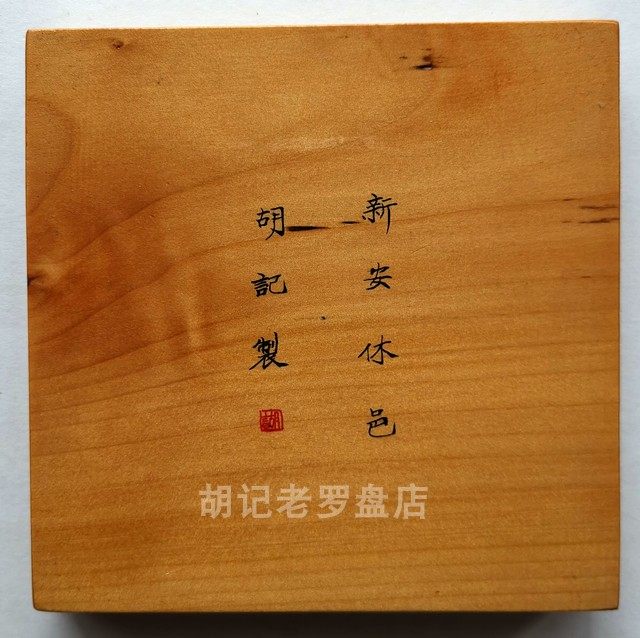 新安休邑
胡記製
胡记老罗盘店